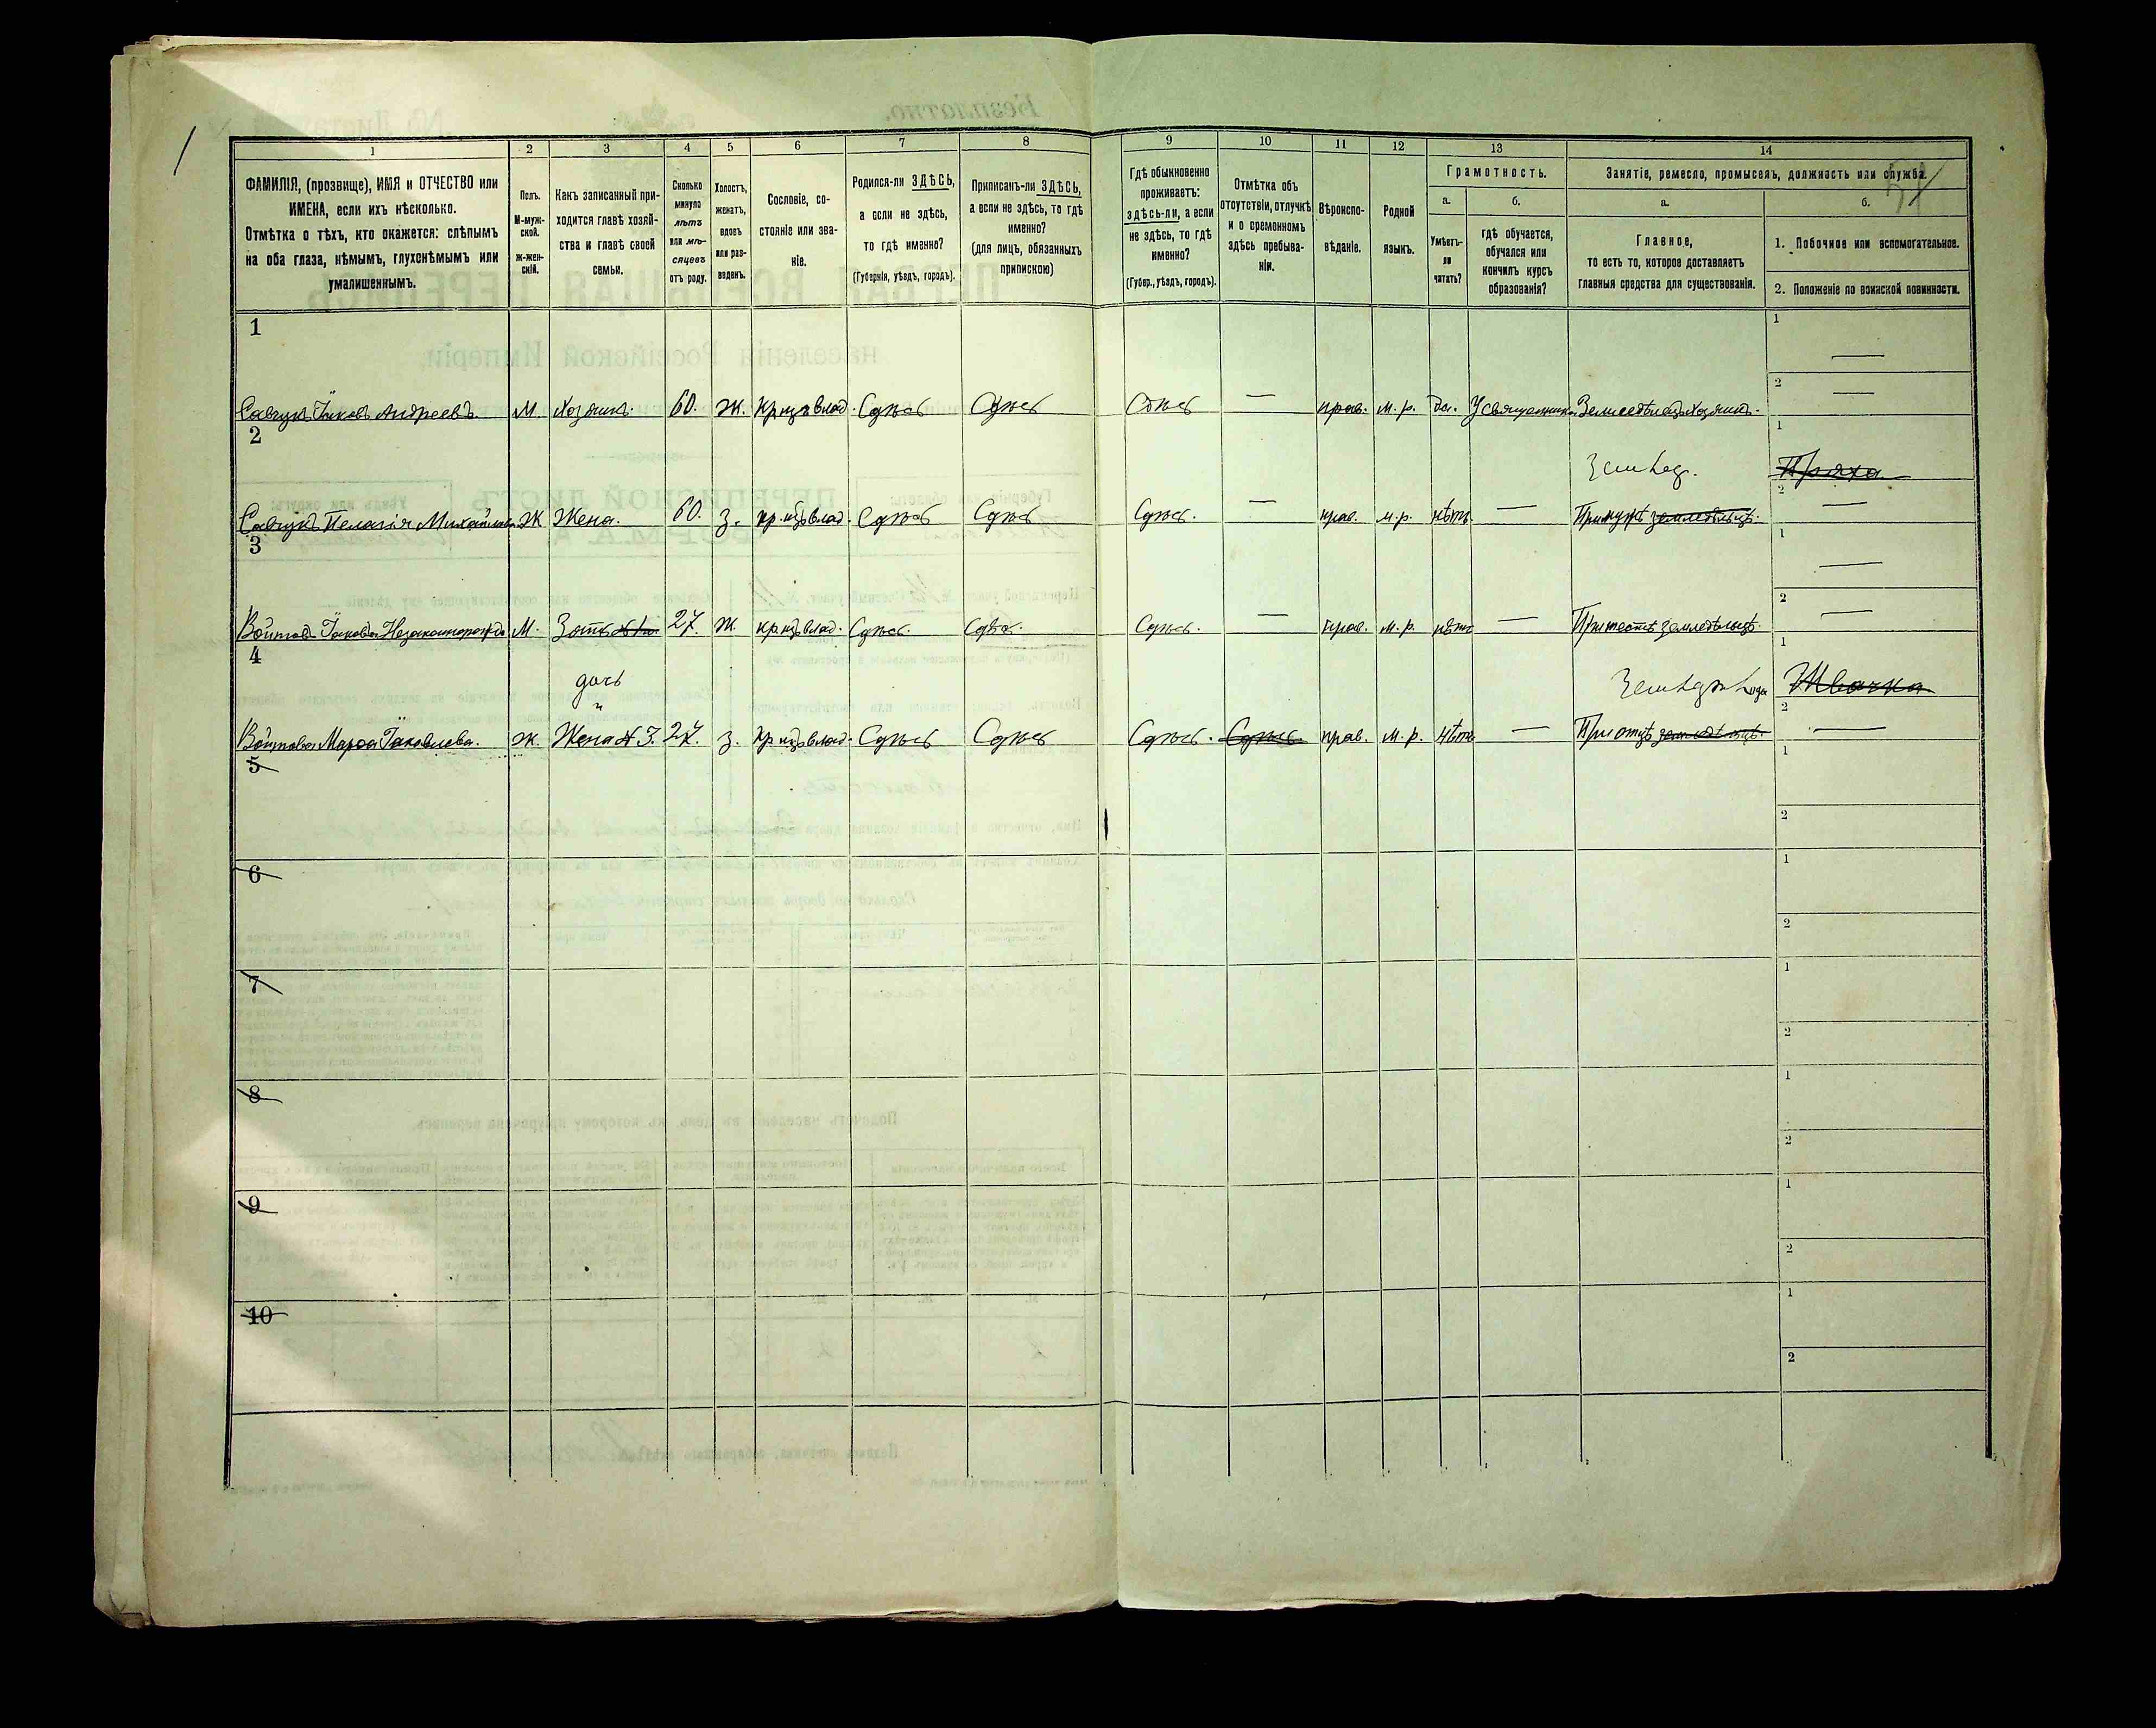 1 2 3 4 5 6 7 8 9 10 11 12 13 14
ФАМИЛІЯ, (прозвище), ИМЯ и ОТЧЕСТВО или
ИМЕНА, если ихъ нѣсколько.
Отмѣтка о тѣхъ, кто окажется: слѣпымъ
на оба глаза, нѣмымъ, глухонѣмымъ или
умалишеннымъ.
Полъ.
М-муж-
ской.
Ж-жен-
скій.
Какъ записанный при-
ходится главѣ хозяй-
ства и главѣ своей
семьи.
Сколько
минуло
лѣтъ
или мѣ-
сяцевъ
отъ роду.
Холостъ,
женатъ,
вдовъ
или раз-
веденъ.
Сословіе, со-
стояніе или зва-
ніе.
Родился-ли ЗДѢСЬ,
а если не здѣсь,
то гдѣ именно?
(Губернія, уѣздъ, городъ).
Приписанъ-ли ЗДѢСЬ,
а если не здѣсь, то гдѣ
именно?
(для лицъ, обязанныхъ
припискою)
Гдѣ обыкновенно
проживаетъ:
здѣсь-ли, а если
не здѣсь, то гдѣ
именно?
(Губер., уѣздъ, городъ).
Отмѣтка объ
отсутствіи, отлучкѣ
и о временномъ
здѣсь пребыва-
ніи.
Вѣроиспо-
вѣданіе.
Родной
языкъ.
Грамотность.
а.
Умѣетъ-
ли
читать?
б.
гдѣ обучается,
обучался или
кончилъ курсъ
образованія?
Занятіе, ремесло, промыселъ, должность или служба.
а.
Главное,
то есть то, которое доставляетъ
главныя средства для существованія.
б.
1. Побочное или вспомогательное.
2. Положеніе по воинской повинности.
1
1 —
2 —
Савчукъ Іяковъ Андреевъ М. Хозяинъ. 60. Ж. кр. изъ влад. Сдѣсь Сдѣсь Сдѣсь — прав. м. р. да. У священника Земледѣлецъ хозяинъ.
2
1 Пряха
2 —
Савчукъ Пелагія Михайлова Ж Жена. 60. З. кр. изъ влад. Сдѣсь Сдѣсь Сдѣсь. — прав. м. р. нѣтъ. — При мужѣ земледѣльцѣ.
3
1 —
2 —
Войтовъ Іаковъ М. Зять 27. Ж кр. изъ влад. Сдѣсь. Сдѣсь. Сдѣсь. — прав. м. р. нѣтъ — При тестѣ земледѣльцѣ
4
дочь
1 Швачка
2 —
Войтова Марѳа Іаковлева. Ж. Жена 3. 27. З. кр. изъ влад. Сдѣсь Сдѣсь Сдѣсь. Сдѣсь. прав. м. р. нѣтъ — При отцѣ земледѣльцѣ.
5
1
2
6
1
2
7
1
2
8
1
2
9
1
2
10
1
2